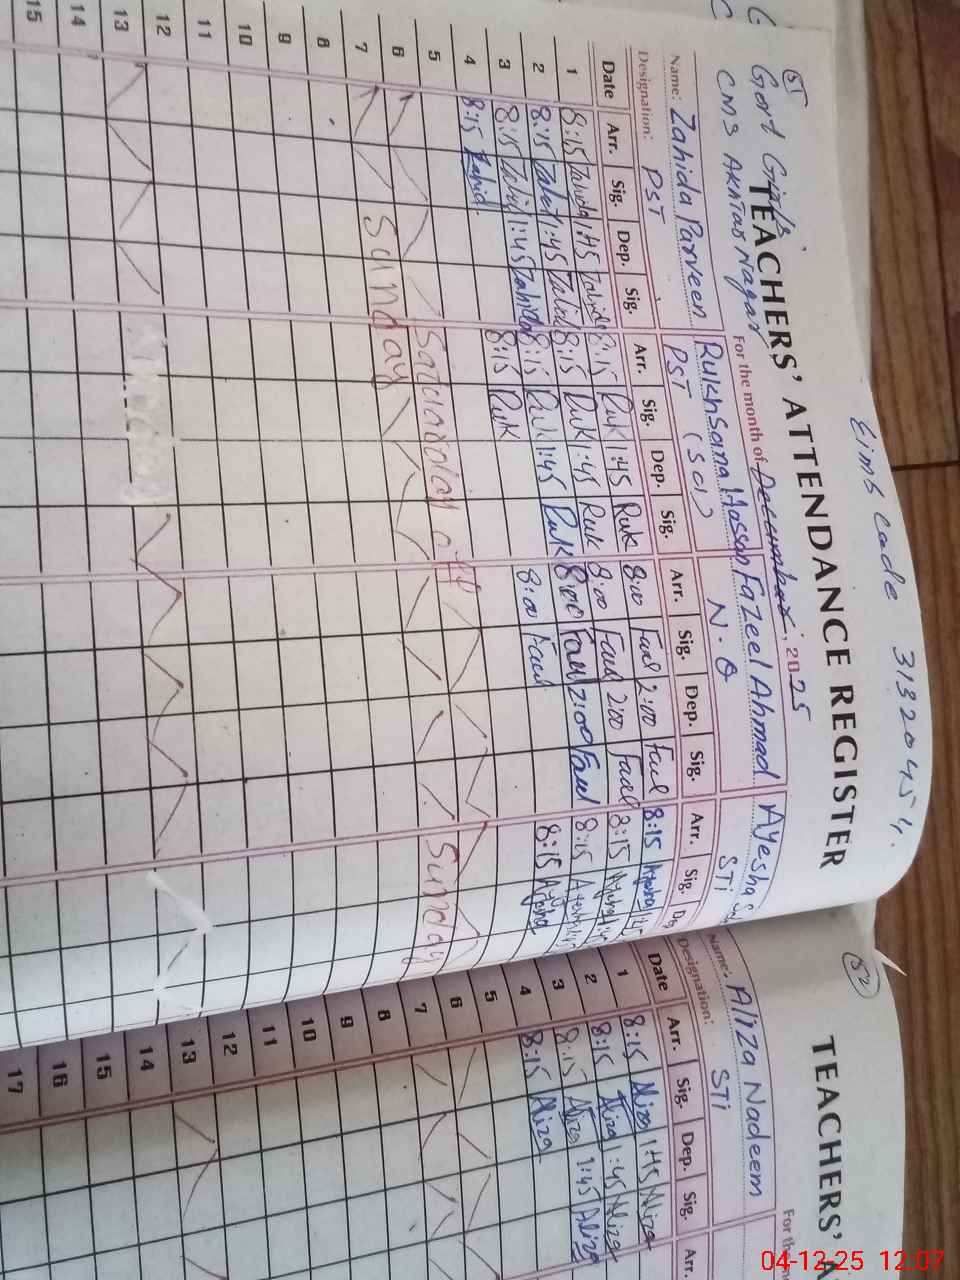 Eims Code 31320454
51
Govt Girls
TEACHERS' ATTENDANCE REGISTER
CMS Akhtar Nagar
For the month of December, 2025
Name: Zahida Parveen Rukhsana Hassan Fazeel Ahmad Ayesha
Designation: PST PST (SCI) N.Q STI
Date Arr. Sig. Dep. Sig. Arr. Sig. Dep. Sig. Arr. Sig. Dep. Sig. Arr. Sig. Dep
1 8:15 Zahida 1:45 Zahida 8:15 Ruk 1:45 Ruk 8:00 Fazel 2:00 Fazel 8:15 Ayesha 1:45
2 8:15 Zahid 1:45 Zahid 8:15 Ruk 1:45 Ruk 8:00 Fazel 2:00 Fazel 8:15 Ayesha 1:45
3 8:15 Zahid 1:45 Zahida 8:15 Ruk 1:45 Ruk 8:00 Fazel 2:00 Fazel 8:15 Ayesha 1:45
4 8:15 Zahid 8:15 Ruk 8:00 Fazel 8:15 Ayesha
5
6 Saturday off
7 Sunday Sunday
8
9
10
11
12
13
14
15
52
TEACHERS' A
For the
Name: Aliza Nadeem
Designation: STI
Date Arr. Sig. Dep. Sig. Arr.
1 8:15 Aliza 1:45 Aliza
2 8:15 Aliza 1:45 Aliza
3 8:15 Aliza 1:45 Aliza
4 8:15 Aliza
5
6
7
8
9
10
11
12
13
14
15
16
17
04-12-25 12:07